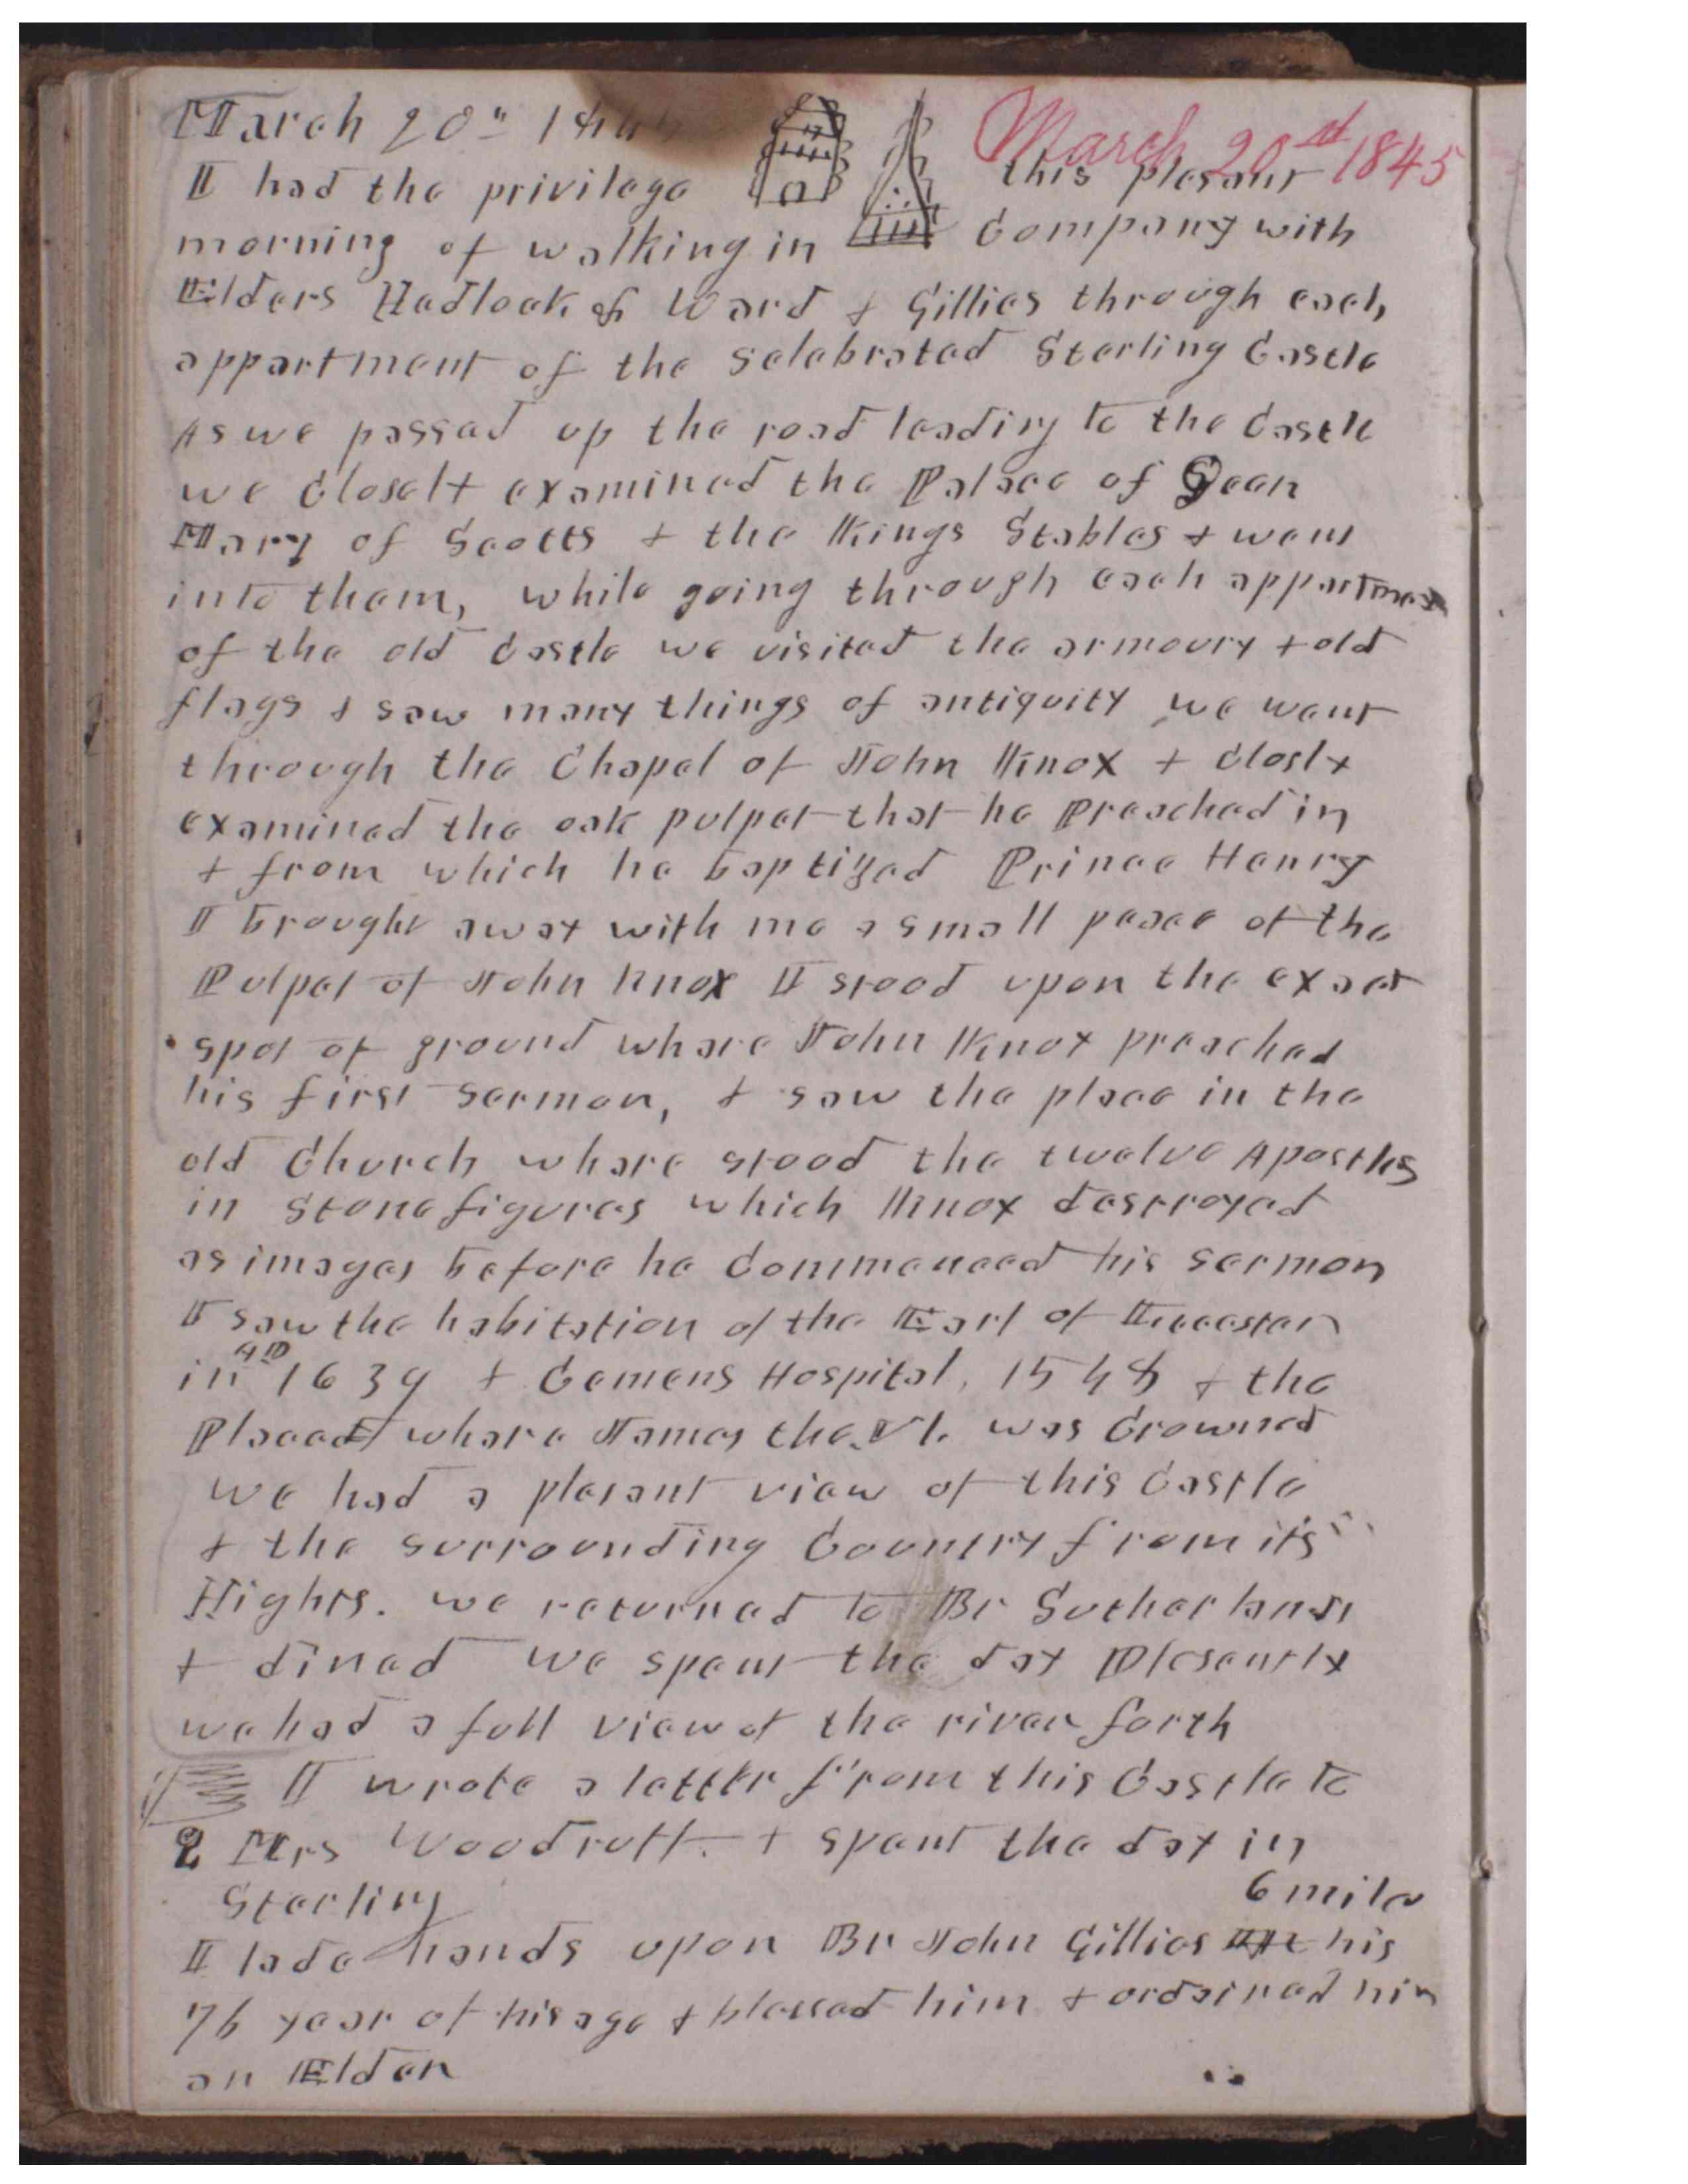 March 20th 1845
March 20st 1845
I had the privilege this plesant
morning of walking in Company with
Elders Hedlock & Ward & Gillies through each
appartment of the Selebrated Sterling Castle
As we passed up the road leading to the Castle
we closelt examined the Palace of Queen
Mary of Scotts & the Kings Stables & went
into them, while going through each appartment
of the old Castle we visited the armoury & old
flags & saw many things of antiquity we went
through the Chapel of John Knox & closly
examined the oak pulpet that he preached in
& from which he baptized Prince Henry
I brought away with me a small peace of the
Pulpet of John Knox I stood upon the exact
spot of ground whare John Knox preached
his first sermon, & saw the place in the
old Church whare stood the twelve Apostles
in Stone figures which Knox destroyed
as images before he commenced his sermon
I saw the habitation of the Earl of
in AD 1639 & Cowens Hospital, 1548 & the
Placed whare James the VI. was crowned
we had a plesant view of this Castle
& the surrounding Country from its
Hights. we returned to Br Sutherlands
& dined we spent the day Plesently
we had a full view of the river forth
I wrote a letter from this Castle to
2 Mrs Woodruff. & spent the day in
Sterling 6 mile
I lade hands upon Br John Gillies his
76 year of his age & blessed him & ordained him
an Elder